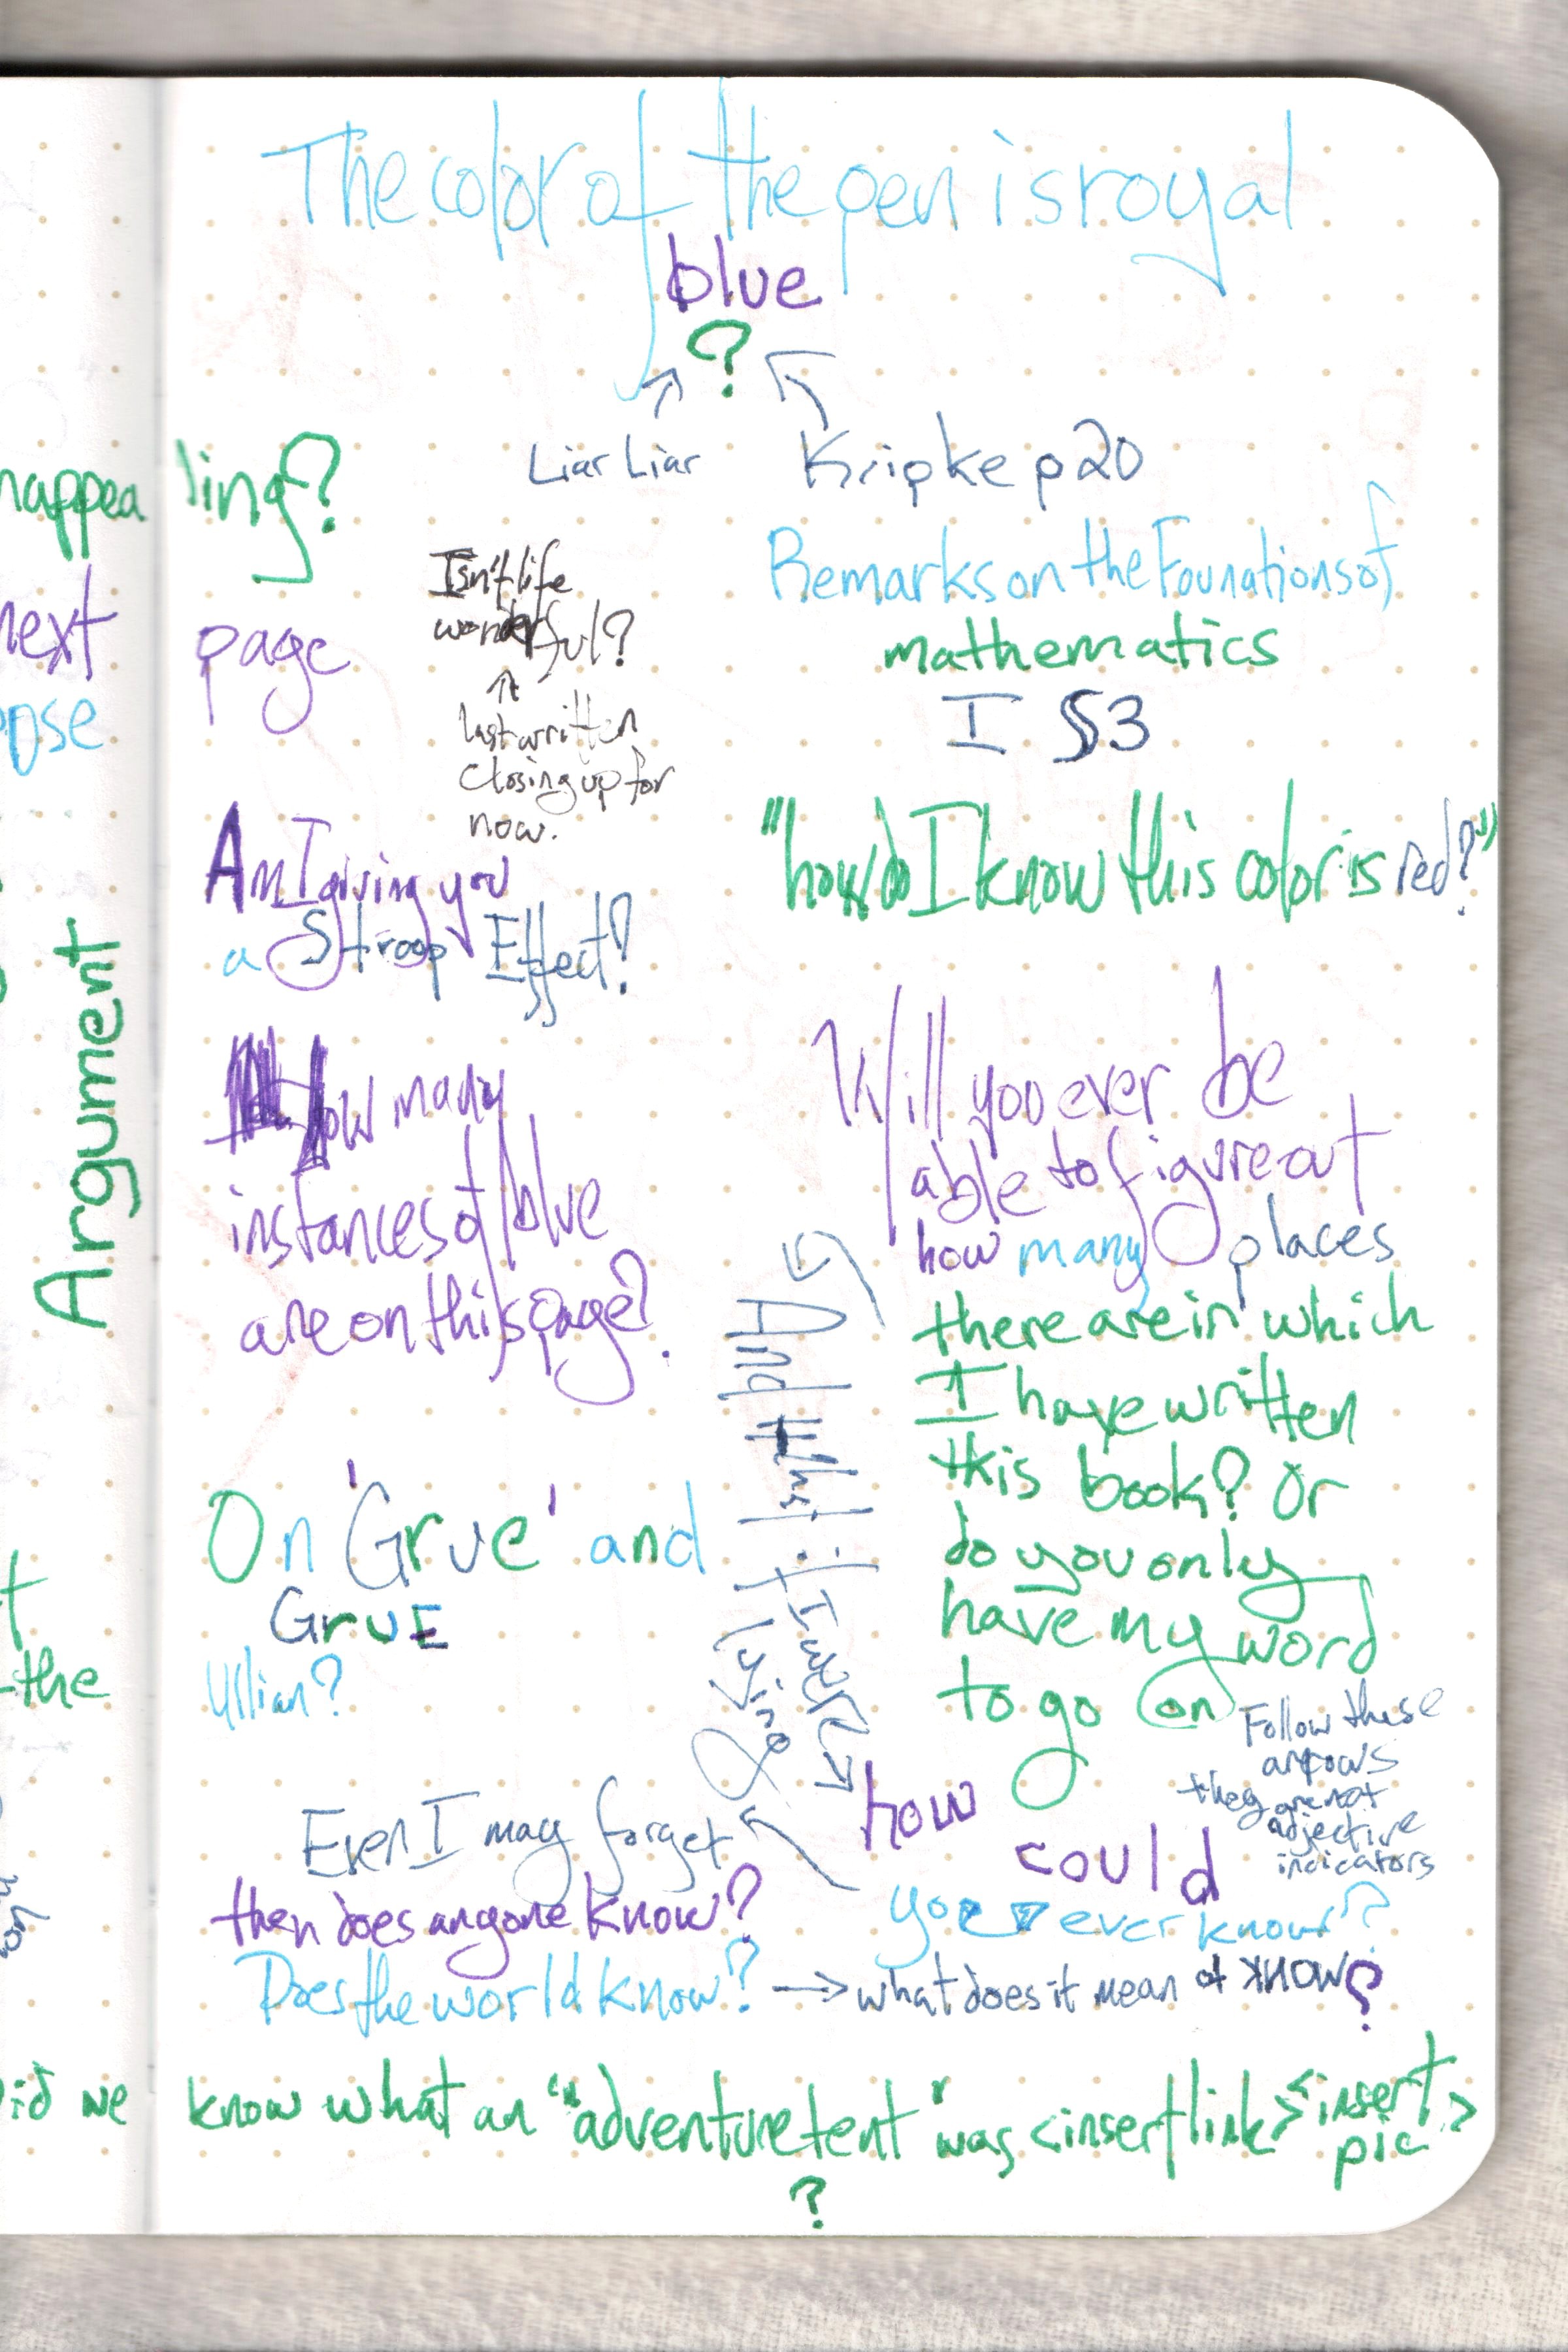 The color of the pen is royal
blue
?
Liar Liar
Kripke p20
nappea ling?
Remarks on the Founations of
mathematics
I §3
Isn't life
wonderful?
last written
closing up for
now.
next page
"how do I know this color is red?"
Am I giving you
a Stroop Effect?
How many
instances of blue
are on this page?
Will you ever be
able to figure out
how many places
there are in which
I have written
this book? Or
do you only
have my word
to go on
And this!
lying
Argument
On 'Grue' and
GruE
Ullian?
the
Follow these
arrows
they are not
adjective
indicators
how
could
you ever know?
Even I may forget
then does anyone know?
Does the world know? → what does it mean to know?
Did we know what an "adventure tent" was <insert link> <insert
pic>
?